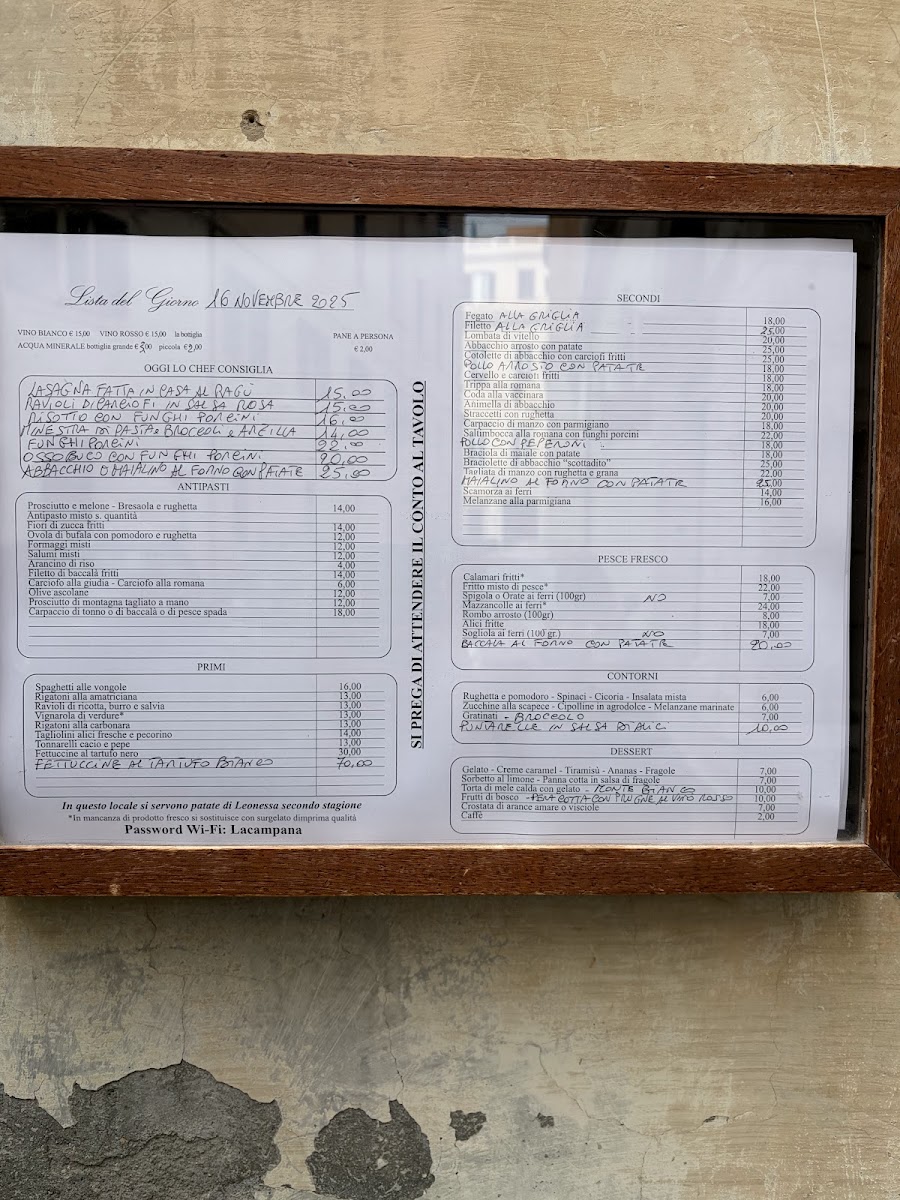 Lista del Giorno 16 NOVEMBRE 2025
VINO BIANCO € 15,00 VINO ROSSO € 15,00 la bottiglia
ACQUA MINERALE bottiglia grande € 3,00 piccola € 2,00
PANE A PERSONA
€ 2,00
OGGI LO CHEF CONSIGLIA
LASAGNA FATTA IN CASA AL RAGÙ 15,00
RAVIOLI DI CARCIOFI IN SALSA ROSA 15,00
RISOTTO CON FUNGHI PORCINI 16,00
MINESTRA DI PASTA e BROCCOLI e ARZILLA 14,00
FUNGHI PORCINI 20,00
OSSOBUCO CON FUNGHI PORCINI 20,00
ABBACCHIO O MAIALINO AL FORNO CON PATATE 25,00
ANTIPASTI
Prosciutto e melone - Bresaola e rughetta 14,00
Antipasto misto s. quantità
Fiori di zucca fritti 14,00
Ovola di bufala con pomodoro e rughetta 12,00
Formaggi misti 12,00
Salumi misti 12,00
Arancino di riso 4,00
Filetto di baccalà fritti 14,00
Carciofo alla giudia - Carciofo alla romana 6,00
Olive ascolane 12,00
Prosciutto di montagna tagliato a mano 12,00
Carpaccio di tonno o di baccalà o di pesce spada 18,00
PRIMI
Spaghetti alle vongole 16,00
Rigatoni alla amatriciana 13,00
Ravioli di ricotta, burro e salvia 13,00
Vignarola di verdure* 13,00
Rigatoni alla carbonara 13,00
Tagliolini alici fresche e pecorino 14,00
Tonnarelli cacio e pepe 13,00
Fettuccine al tartufo nero 30,00
FETTUCCINE AL TARTUFO BIANCO 70,00
In questo locale si servono patate di Leonessa secondo stagione
*In mancanza di prodotto fresco si sostituisce con surgelato dimprima qualità
Password Wi-Fi: Lacampana
SI PREGA DI ATTENDERE IL CONTO AL TAVOLO
SECONDI
Fegato ALLA GRIGLIA 18,00
Filetto ALLA GRIGLIA 25,00
Lombata di vitello 20,00
Abbacchio arrosto con patate 25,00
Cotolette di abbacchio con carciofi fritti 25,00
POLLO ARROSTO CON PATATE 18,00
Cervello e carciofi fritti 18,00
Trippa alla romana 18,00
Coda alla vaccinara 20,00
Animella di abbacchio 20,00
Straccetti con rughetta 20,00
Carpaccio di manzo con parmigiano 18,00
Saltimbocca alla romana con funghi porcini 22,00
POLLO CON PEPERONI 18,00
Braciola di maiale con patate 18,00
Braciolette di abbacchio "scottadito" 25,00
Tagliata di manzo con rughetta e grana 22,00
MAIALINO AL FORNO CON PATATE 25,00
Scamorza ai ferri 14,00
Melanzane alla parmigiana 16,00
PESCE FRESCO
Calamari fritti* 18,00
Fritto misto di pesce* 22,00
Spigola o Orate ai ferri (100gr) NO 7,00
Mazzancolle ai ferri* 24,00
Rombo arrosto (100gr) 8,00
Alici fritte 18,00
Sogliola ai ferri (100 gr.) NO 7,00
BACCALÀ AL FORNO CON PATATE 20,00
CONTORNI
Rughetta e pomodoro - Spinaci - Cicoria - Insalata mista 6,00
Zucchine alla scapece - Cipolline in agrodolce - Melanzane marinate 6,00
Gratinati - BROCCOLO 7,00
PUNTARELLE IN SALSA DI ALICI 10,00
DESSERT
Gelato - Creme caramel - Tiramisù - Ananas - Fragole 7,00
Sorbetto al limone - Panna cotta in salsa di fragole 7,00
Torta di mele calda con gelato - MONTE BIANCO 10,00
Frutti di bosco - PERA COTTA CON PRUGNE AL VINO ROSSO 10,00
Crostata di arance amare o visciole 7,00
Caffè 2,00